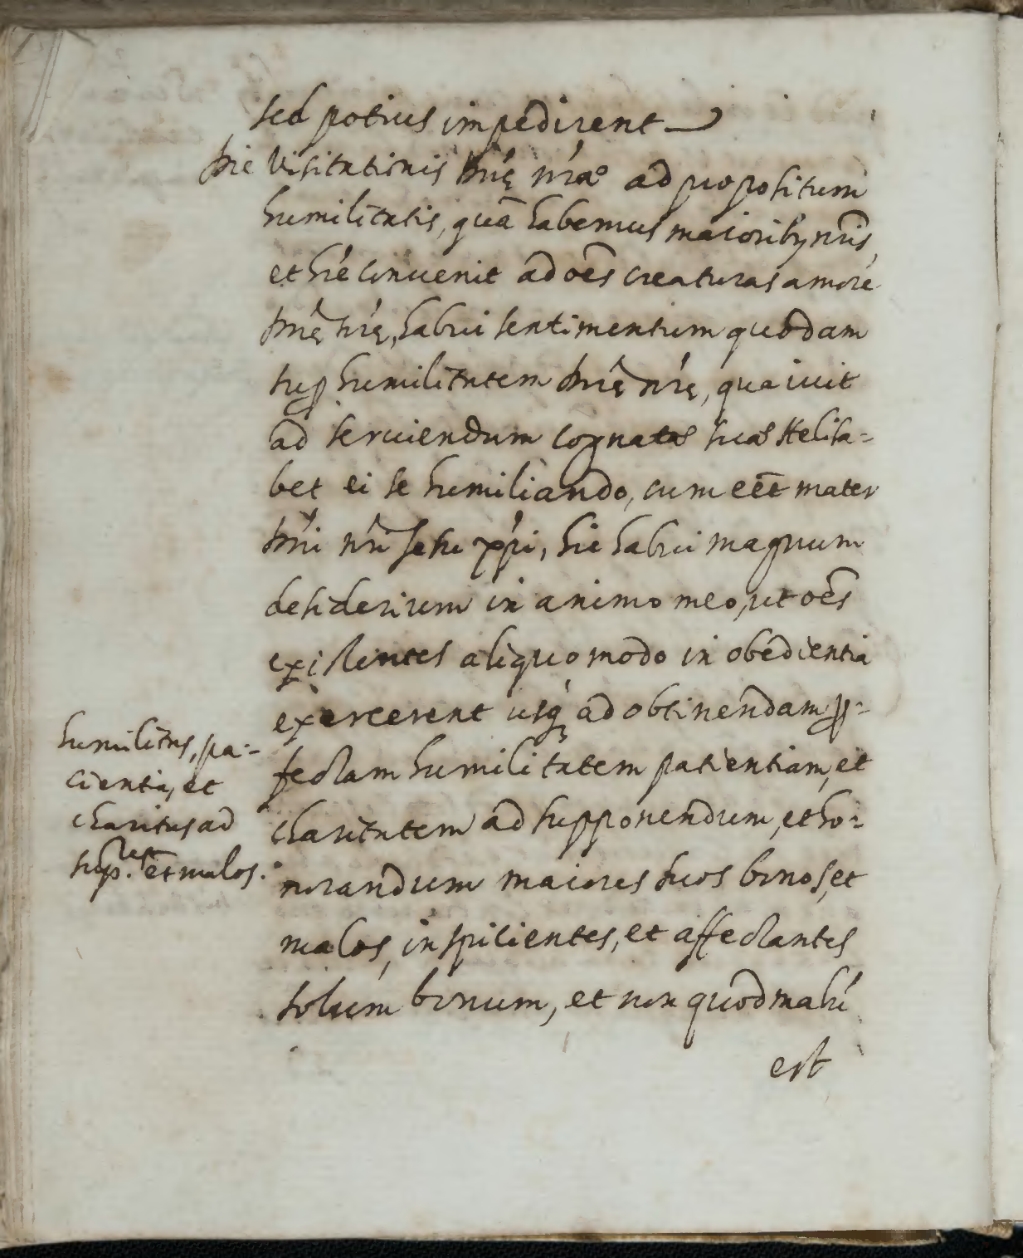 sed potius impedirent
Die Visitationis Dnę nrae ad propositum
humilitatis, quã habemus maioribȝ nris,
et hr̃e conuenit ad oẽs creaturas amore
Dnę nrę, habui sentimentum quoddam
sup̱ humilitatem Dnę nrę, qua iuit
ad seruiendum cognatae suae Helisa=
bet ei se humiliando, cum eẽt mater
Dñi nri Jesu xp̃i, hic habui magnum
desiderium in animo meo, ut oẽs
existentes aliquo modo in obedientia
exercerent usq̨ ad obtinendam p̱=
fectam humilitatem patientiam, et
charitatem ad supponendum, et ho=
norandum maiores suos bonos, et
malos, inspicientes, et affectantes
solum bonum, et non quod malú
est
humilitas, pa=
cientia, et
charitas ad
sup.res et malos.